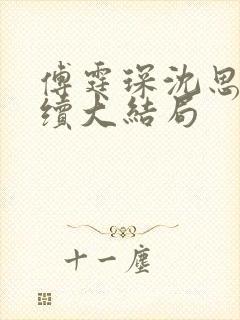 傅霆琛沈思
續大結局
十一塵